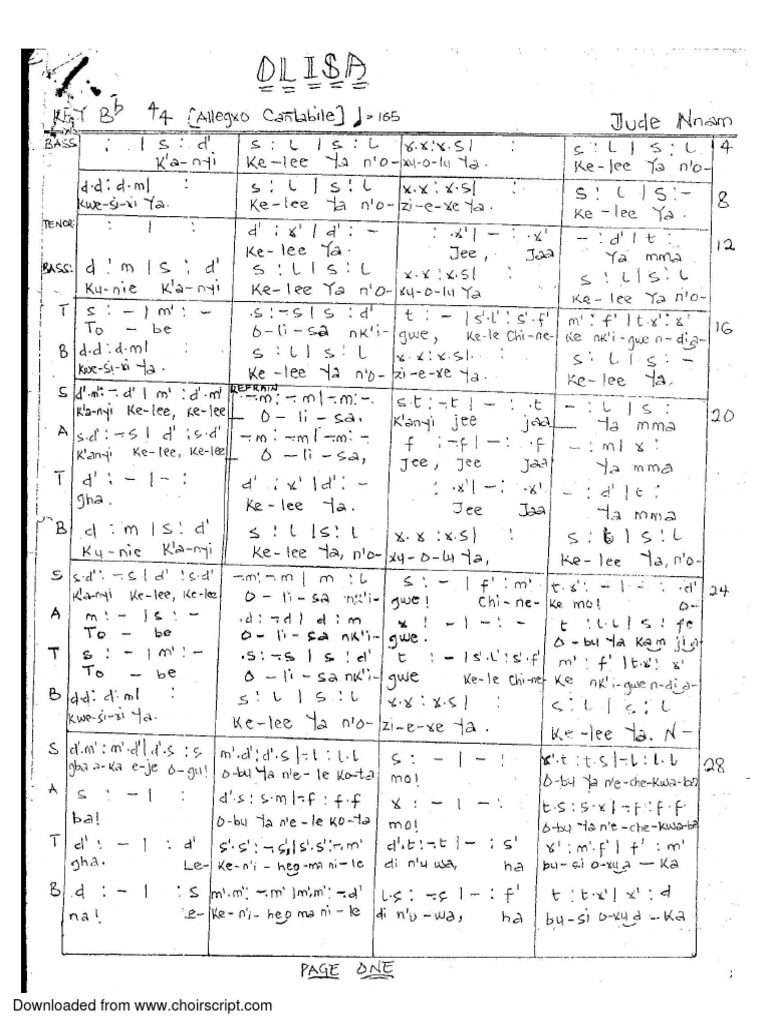 OLISA
KEY Bb 4/4 [Allegro Cantabile] ♩=165
Jude Nnam
BASS : | s : d' s : l | s : l r.r : r.s | : s : l | s : l 4
K'a-nyi Ke-lee Ya n'o- ru-o-lu Ya. Ke-lee Ya n'o-
d.d : d.m | : s : l | s : l r.r : r.s | : s : l | s : - 8
Kwe-si-ri Ya. Ke-lee Ya n'o- zi-e-re Ya. Ke-lee Ya.
TENOR : | : d' : r' | d' : - : .r' | - : .r' - : d' | t : 12
Ke-lee Ya. Jee, Jaa Ya mma
BASS: d : m | s : d' s : l | s : l r.r : r.s | : s : l | s : l
Ku-nie K'a-nyi Ke-lee Ya n'o- ru-o-lu Ya Ke-lee Ya n'o-
T s : - | m' : - .s : -.s | s : d' t : - | s'.l' : s'.f' m' : f' | t.r' : r' 16
To - be O-li-sa nk'i- gwe, Ke-le Chi-ne- Ke nk'i-gwe n-dia-
B d.d : d.m | : s : l | s : l r.r : r.s | : s : l | s : -
Kwe-si-ri Ya. Ke-lee Ya n'o- zi-e-re Ya. Ke-lee Ya.
REFRAIN
S d'.m' : -.d' | m' : d'.m' -.m : -.m | -.m : - s.t : -.t | - : .t - : l | s : 20
K'a-nyi Ke-lee, Ke-lee O - li - sa. K'anyi jee jaa Ya mma
A s.d' : -.s | d' : s.d' -.m : -.m | -.m : - f : -.f | - : .f - : m | r :
K'anyi Ke-lee, Ke-lee O - li - sa, Jee, Jee Jaa Ya mma
T d' : - | - : d' : r' | d' : - : .r' | - : .r' - : d' | t :
gha. Ke-lee Ya. Jee Jaa Ya mma
B d : m | s : d' s : l | s : l r.r : r.s | : s : l | s : l
Ku-nie K'a-nyi Ke-lee Ya, n'o- ru-o-lu Ya, Ke-lee Ya, n'o-
S s.d' : -.s | d' : s.d' -.m' : -.m | m : l s : - | f' : m' t.s' : - | - : .d' 24
K'a-nyi Ke-lee, Ke-lee O - li - sa nk'i- gwe! Chi-ne- Ke mo! O-
A m : - | s : - .d : -.d | d : m r : - | - : - t : l.l | s : fe
To - be O-li-sa nk'i- gwe. O-bu Ya kam ji
T s : - | m' : - .s : -.s | s : d' t : - | s'.l' : s'.f' m' : f' | t.r' : r'
To - be O-li-sa nk'i- gwe Ke-le Chi-ne- Ke nk'i-gwe n-dia-
B d.d : d.m | : s : l | s : l r.r : r.s | : s : l | s : l
Kwe-si-ri Ya. Ke-lee Ya n'o- zi-e-re Ya. Ke-lee Ya. N-
S d'.m' : m'.d' | d'.s : s m'.d' : d'.s | -.l : l.l s : - | - : r'.t : t.s | -.l : l.l 28
gba a-ka e-je O-gu! O-bu Ya n'e-le ko-ta mo! O-bu Ya n'e-che-kwa-ba
A s : - | : d'.s : s.m | -.f : f.f r : - | - : t.s : s.r | -.f : f.f
ba! O-bu Ya n'e-le ko-ta mo! O-bu Ya n'e-che-kwa-ba
T d' : - | : d' s'.s' : -.s' | s'.s' : -.m' d'.t : -.t | - : s' r' : m'.f' | f' : m'
gha. Le- Ke-n'i-heo ma ni-le di n'u wa, ha bu-si o-rua-Ka
B d : - | : s m'.m' : -.m' | m'.m' : -.d' l.s : -.s | - : f' t : t.r' | r' : d
na! Le- Ke-n'i-heo ma ni-le di n'u-wa, ha bu-si o-ru -Ka
PAGE ONE
Downloaded from www.choirscript.com